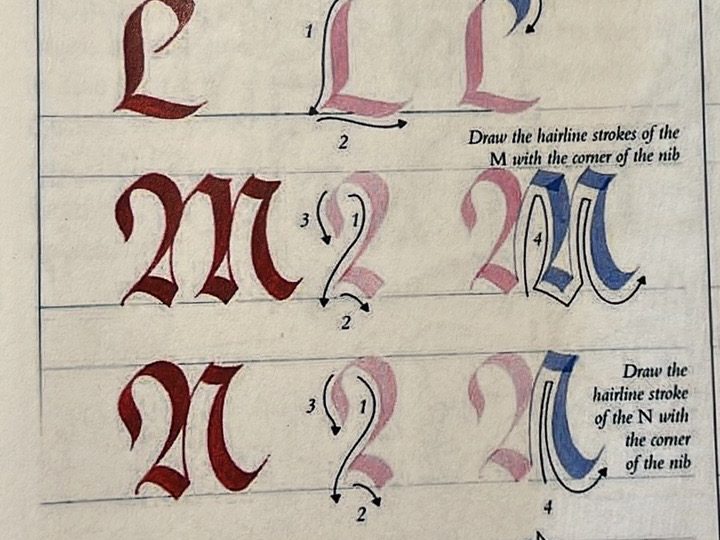 L 1 L L
2
Draw the hairline strokes of the
M with the corner of the nib
M 3 1 4 M
2
N 3 1 N
Draw the
hairline stroke
of the N with
the corner
of the nib
2 4